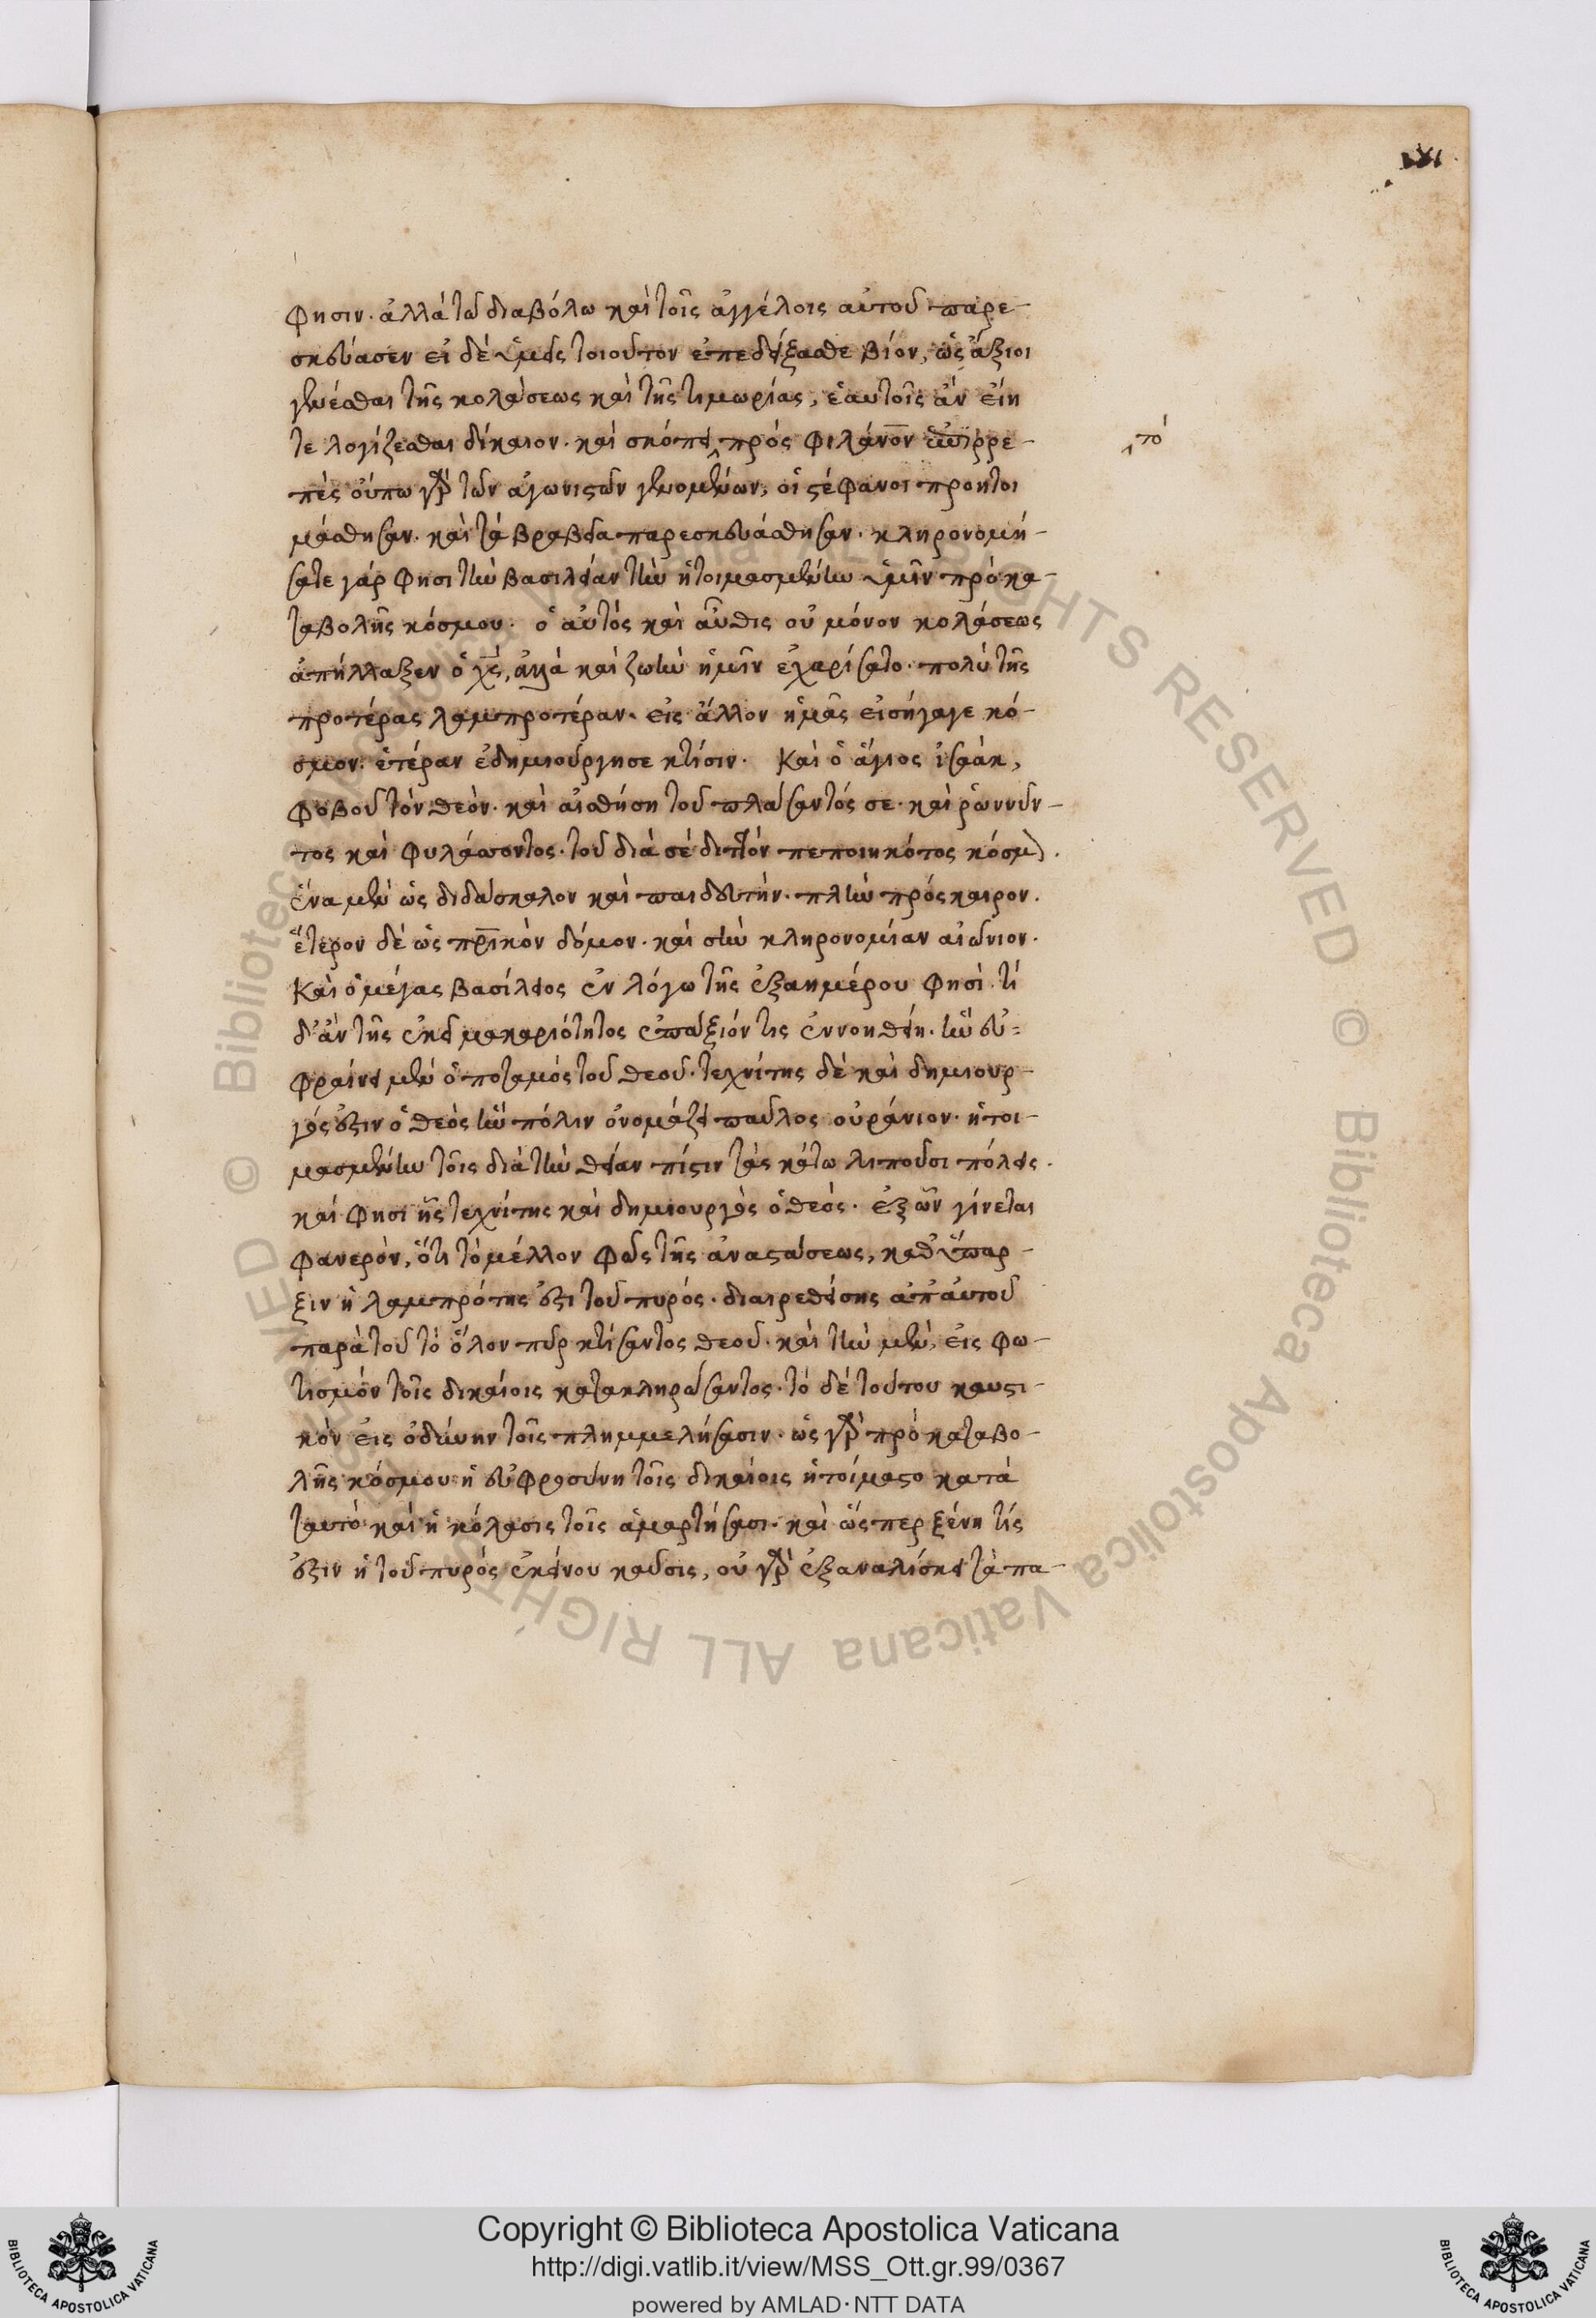 φησιν· ἀλλὰ τῶ διαβόλω καὶ τοῖς ἀγγέλοις αὐτοῦ παρε-
σκεύασεν εἰ δὲ ὑμεῖς τοιοῦτον ἐπεδείξασθε βίον, ὡς ἄξιοι
γενέσθαι τῆς κολάσεως καὶ τῆς τιμωρίας, ἑαυτοῖς ἂν εἴη
τε λογίζεσθαι δίκαιον· καὶ σκόπει πρὸς φιλάνον
πὲς οὔπω γὰρ τῶν ἀγωνιστῶν γενομένων, οἱ στέφανοι προητοι
μάσθησαν· καὶ τὰ βραβεῖα παρεσκευάσθησαν· κληρονομή-
σατε γάρ φησι τὴν βασιλείαν τὴν ἡτοιμασμένην ὑμῖν πρὸ κα-
ταβολῆς κόσμου· ὁ αὐτὸς καὶ αὖθις οὐ μόνον κολάσεως
ἀπήλλαξεν ὁ χς, ἀλλὰ καὶ ζωὴν ἡμῖν ἐχαρίσατο· πολὺ τῆς
προτέρας λαμπροτέραν· εἰς ἄλλον ἡμᾶς εἰσήγαγε κό-
σμον· ἑτέραν ἐδημιούργησε κτίσιν· Καὶ ὁ ἅγιος ἰσαὰκ,
φοβοῦ τὸν θεόν· καὶ αἰσθήση τοῦ πλάσαντός σε· καὶ ῥωννῦν-
τος καὶ φυλάττοντος· τοῦ διὰ σὲ διττὸν πεποιηκότος κόσμου·
ἕνα μὲν ὡς διδάσκαλον καὶ παιδευτήν· πλὴν πρόσκαιρον·
ἕτερον δὲ ὡς πρικὸν δόμον· καὶ σὴν κληρονομίαν αἰώνιον·
Καὶ ὁ μέγας βασίλειος ἐν λόγω τῆς ἑξαημέρου φησὶ· τί
δ' ἂν τῆς ἐκεῖ μακαριότητος ἐπάξιόν τις ἐννοηθείη· ἣν εὐ=
φραίνει μὲν ὁ ποταμὸς τοῦ θεοῦ· τεχνίτης δὲ καὶ δημιουρ-
γός ἐστιν ὁ θεὸς ἣν πόλιν ὀνομάζει παῦλος οὐράνιον· ἡτοι-
μασμένην τοῖς διὰ τὴν θείαν πίστιν τὰς κάτω λιποῦσι πόλεις·
καί φησι ἧς τεχνίτης καὶ δημιουργὸς ὁ θεός· ἐξ ὧν γίνεται
φανερὸν, ὅτι τὸ μέλλον φῶς τῆς ἀναστάσεως, καθ' ὕπαρ-
ξιν ἡ λαμπρότης ἐστι τοῦ πυρός· διαιρεθείσης ἀπ' αὐτοῦ
παρὰ τοῦ τὸ ὅλον πῦρ κτίσαντος θεοῦ· καὶ τὴν μὲν, εἰς φω-
τισμὸν τοῖς δικαίοις κατακληρώσαντος· τὸ δὲ τούτου καυστι-
κὸν εἰς ὀδύνην τοῖς πλημμελήσασιν· ὡς γὰρ πρὸ καταβο-
λῆς κόσμου ἡ εὐφροσύνη τοῖς δικαίοις ἡτοίμαστο κατὰ
ταυτὸ καὶ ἡ κόλασις τοῖς ἁμαρτήσασι· καὶ ὥσπερ ξένη τίς
ἐστιν ἡ τοῦ πυρὸς ἐκείνου καῦσις, οὐ γὰρ ἐξαναλίσκει τὰ πα-
τὸ
Copyright © Biblioteca Apostolica Vaticana
http://digi.vatlib.it/view/MSS_Ott.gr.99/0367
powered by AMLAD·NTT DATA
BIBLIOTECA APOSTOLICA VATICANA
BIBLIOTECA APOSTOLICA VATICANA